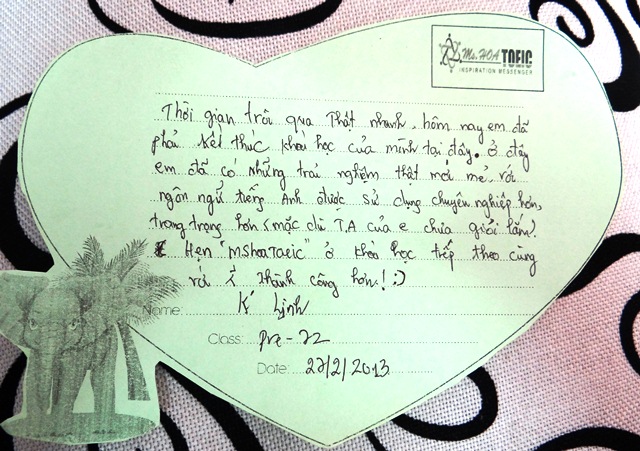 Ms. HOA TOEIC
INSPIRATION MESSENGER
Thời gian trôi qua thật nhanh, hôm nay em đã
phải kết thúc khóa học của mình tại đây. ở đây
em đã có những trải nghiệm thật mới mẻ với
ngôn ngữ tiếng Anh được sử dụng chuyên nghiệp hơn,
trọng hơn (mặc dù T.A của e chưa giỏi lắm)
Hẹn "MSHoaToeic" ở khóa học tiếp theo cùng
với thành công hơn.! :)
Name: K' Lynh
Class: pre-22
Date: 27/2/2013